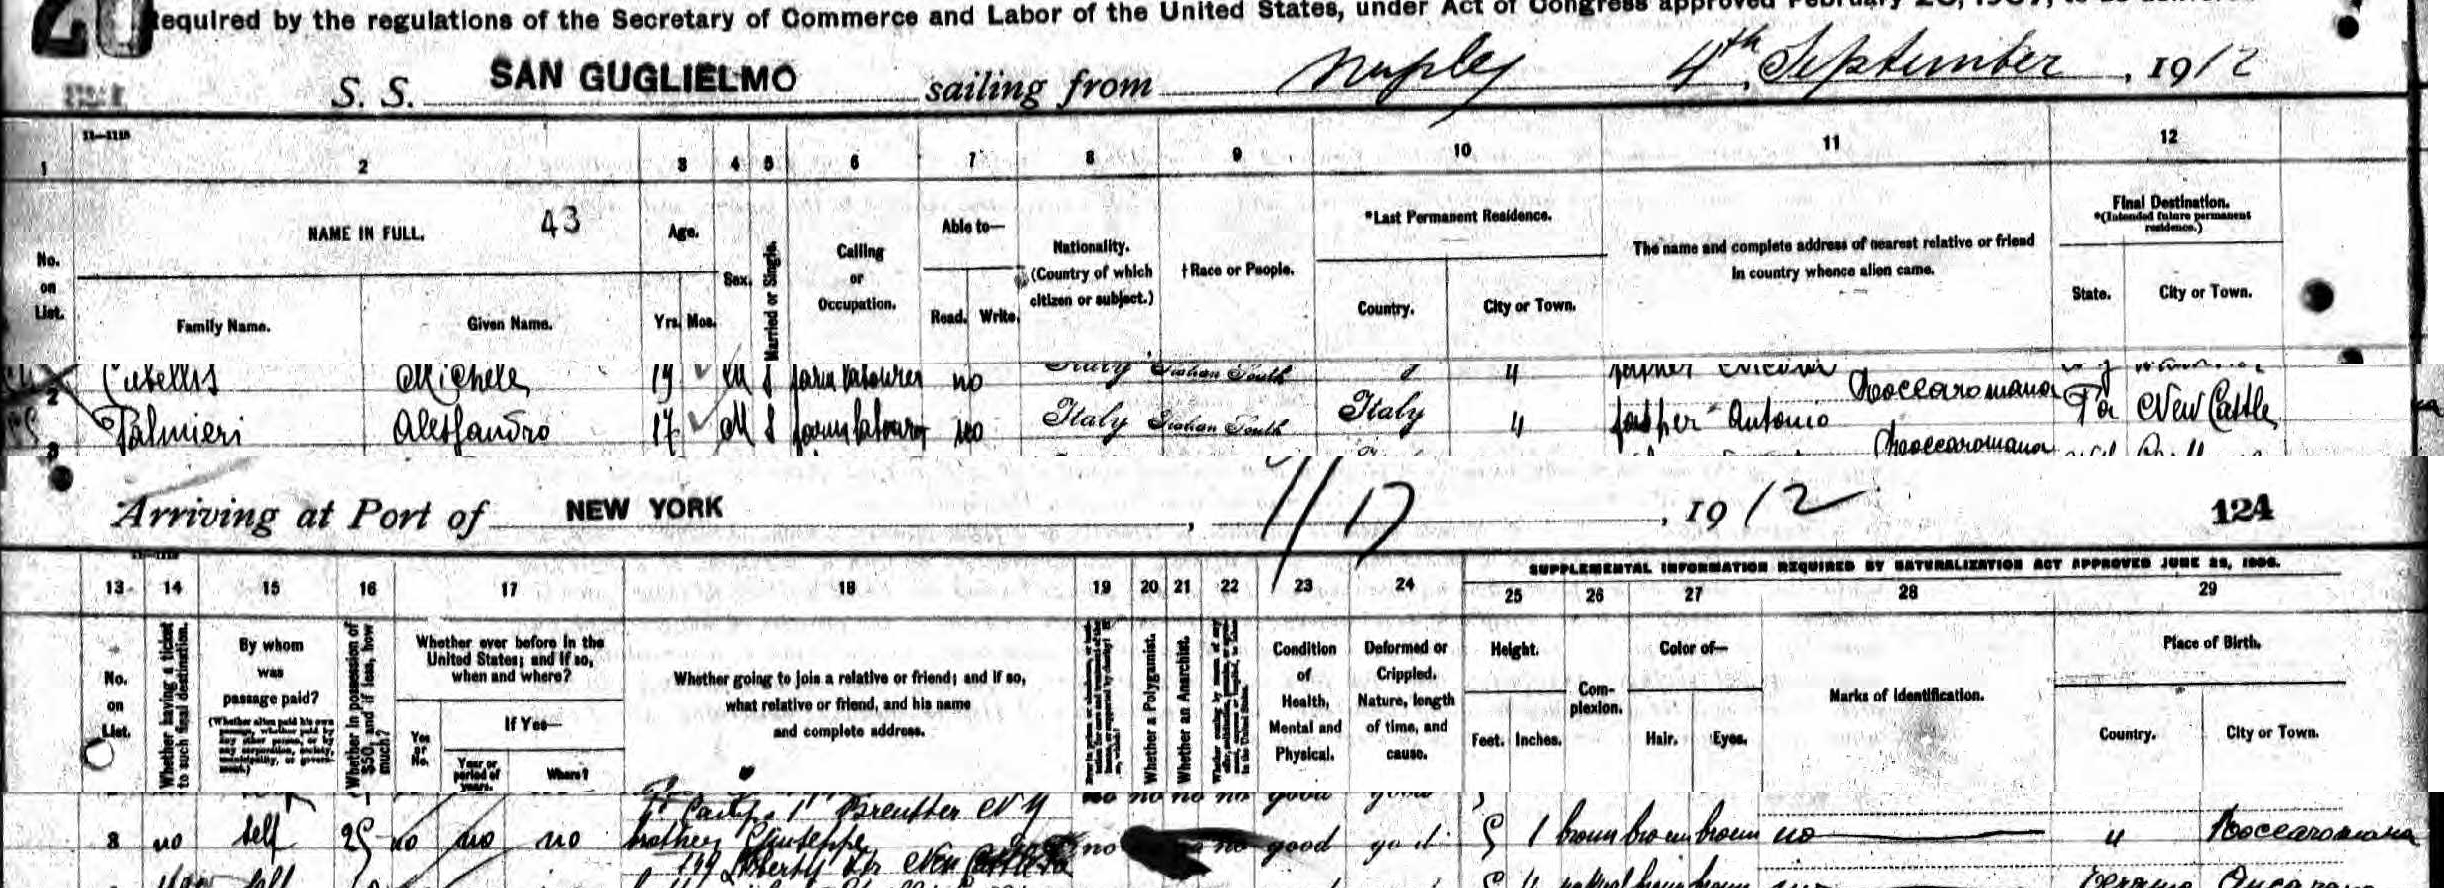 20
Required by the regulations of the Secretary of Commerce and Labor of the United States, under Act of Congress approved February 20, 1907, to be delivered
S. S. SAN GUGLIELMO sailing from Naples 4th September, 1912
11—1118
1 2 3 4 5 6 7 8 9 10 11 12
No. on List.
NAME IN FULL. 43
Family Name. Given Name.
Age. Yrs. Mos.
Sex.
Married or Single.
Calling or Occupation.
Able to— Read. Write.
Nationality. (Country of which citizen or subject.)
†Race or People.
*Last Permanent Residence.
Country. City or Town.
The name and complete address of nearest relative or friend in country whence alien came.
Final Destination.
*(Intended future permanent residence.)
State. City or Town.
Cubellis Michele 19 M S farm labourer no Italy Italian South "
2 Roccaromana
Palmieri Alessandro 17 M S farm labourer no Italy Italian South Italy " father Antonio Pa New Castle
3 Roccaromana
Arriving at Port of NEW YORK, 1912 124
13 14 15 16 17 18 19 20 21 22 23 24 25 26 27 28 29
SUPPLEMENTAL INFORMATION REQUIRED BY NATURALIZATION ACT APPROVED JUNE 29, 1906.
No. on List.
Whether having a ticket to such final destination.
By whom was passage paid?
(Whether alien paid his own passage, whether paid by any other person, or by any corporation, society, municipality, or government.)
Whether in possession of $50, and if less, how much?
Whether ever before in the United States; and if so, when and where?
Yes or No. If Yes— Year or period of years. Where?
Whether going to join a relative or friend; and if so, what relative or friend, and his name and complete address.
Whether a Polygamist.
Whether an Anarchist.
Condition of Health, Mental and Physical.
Deformed or Crippled. Nature, length of time, and cause.
Height. Feet. Inches.
Complexion.
Color of— Hair. Eyes.
Marks of Identification.
Place of Birth.
Country. City or Town.
N Y no no no no good good
3 no self 25 no no no brother Giuseppe no no good good 5 1 brown brown brown no " Roccaromana
Liberty Str New Castle Pa
self